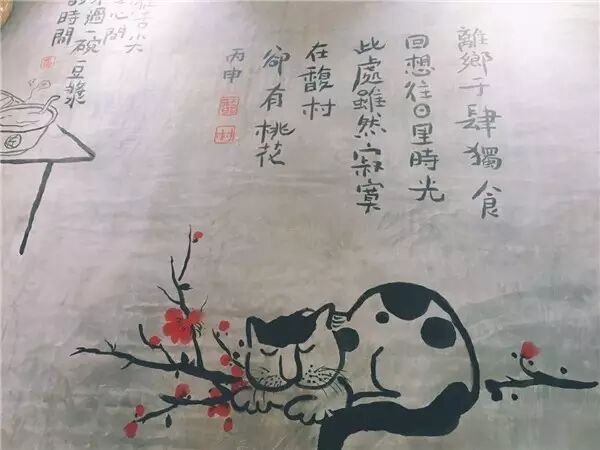 離鄉于肆獨食
回想往日里時光
此處雖然寂寞
在馥村
卻有桃花
丙申
小大
心間
過一碗豆漿
的時間